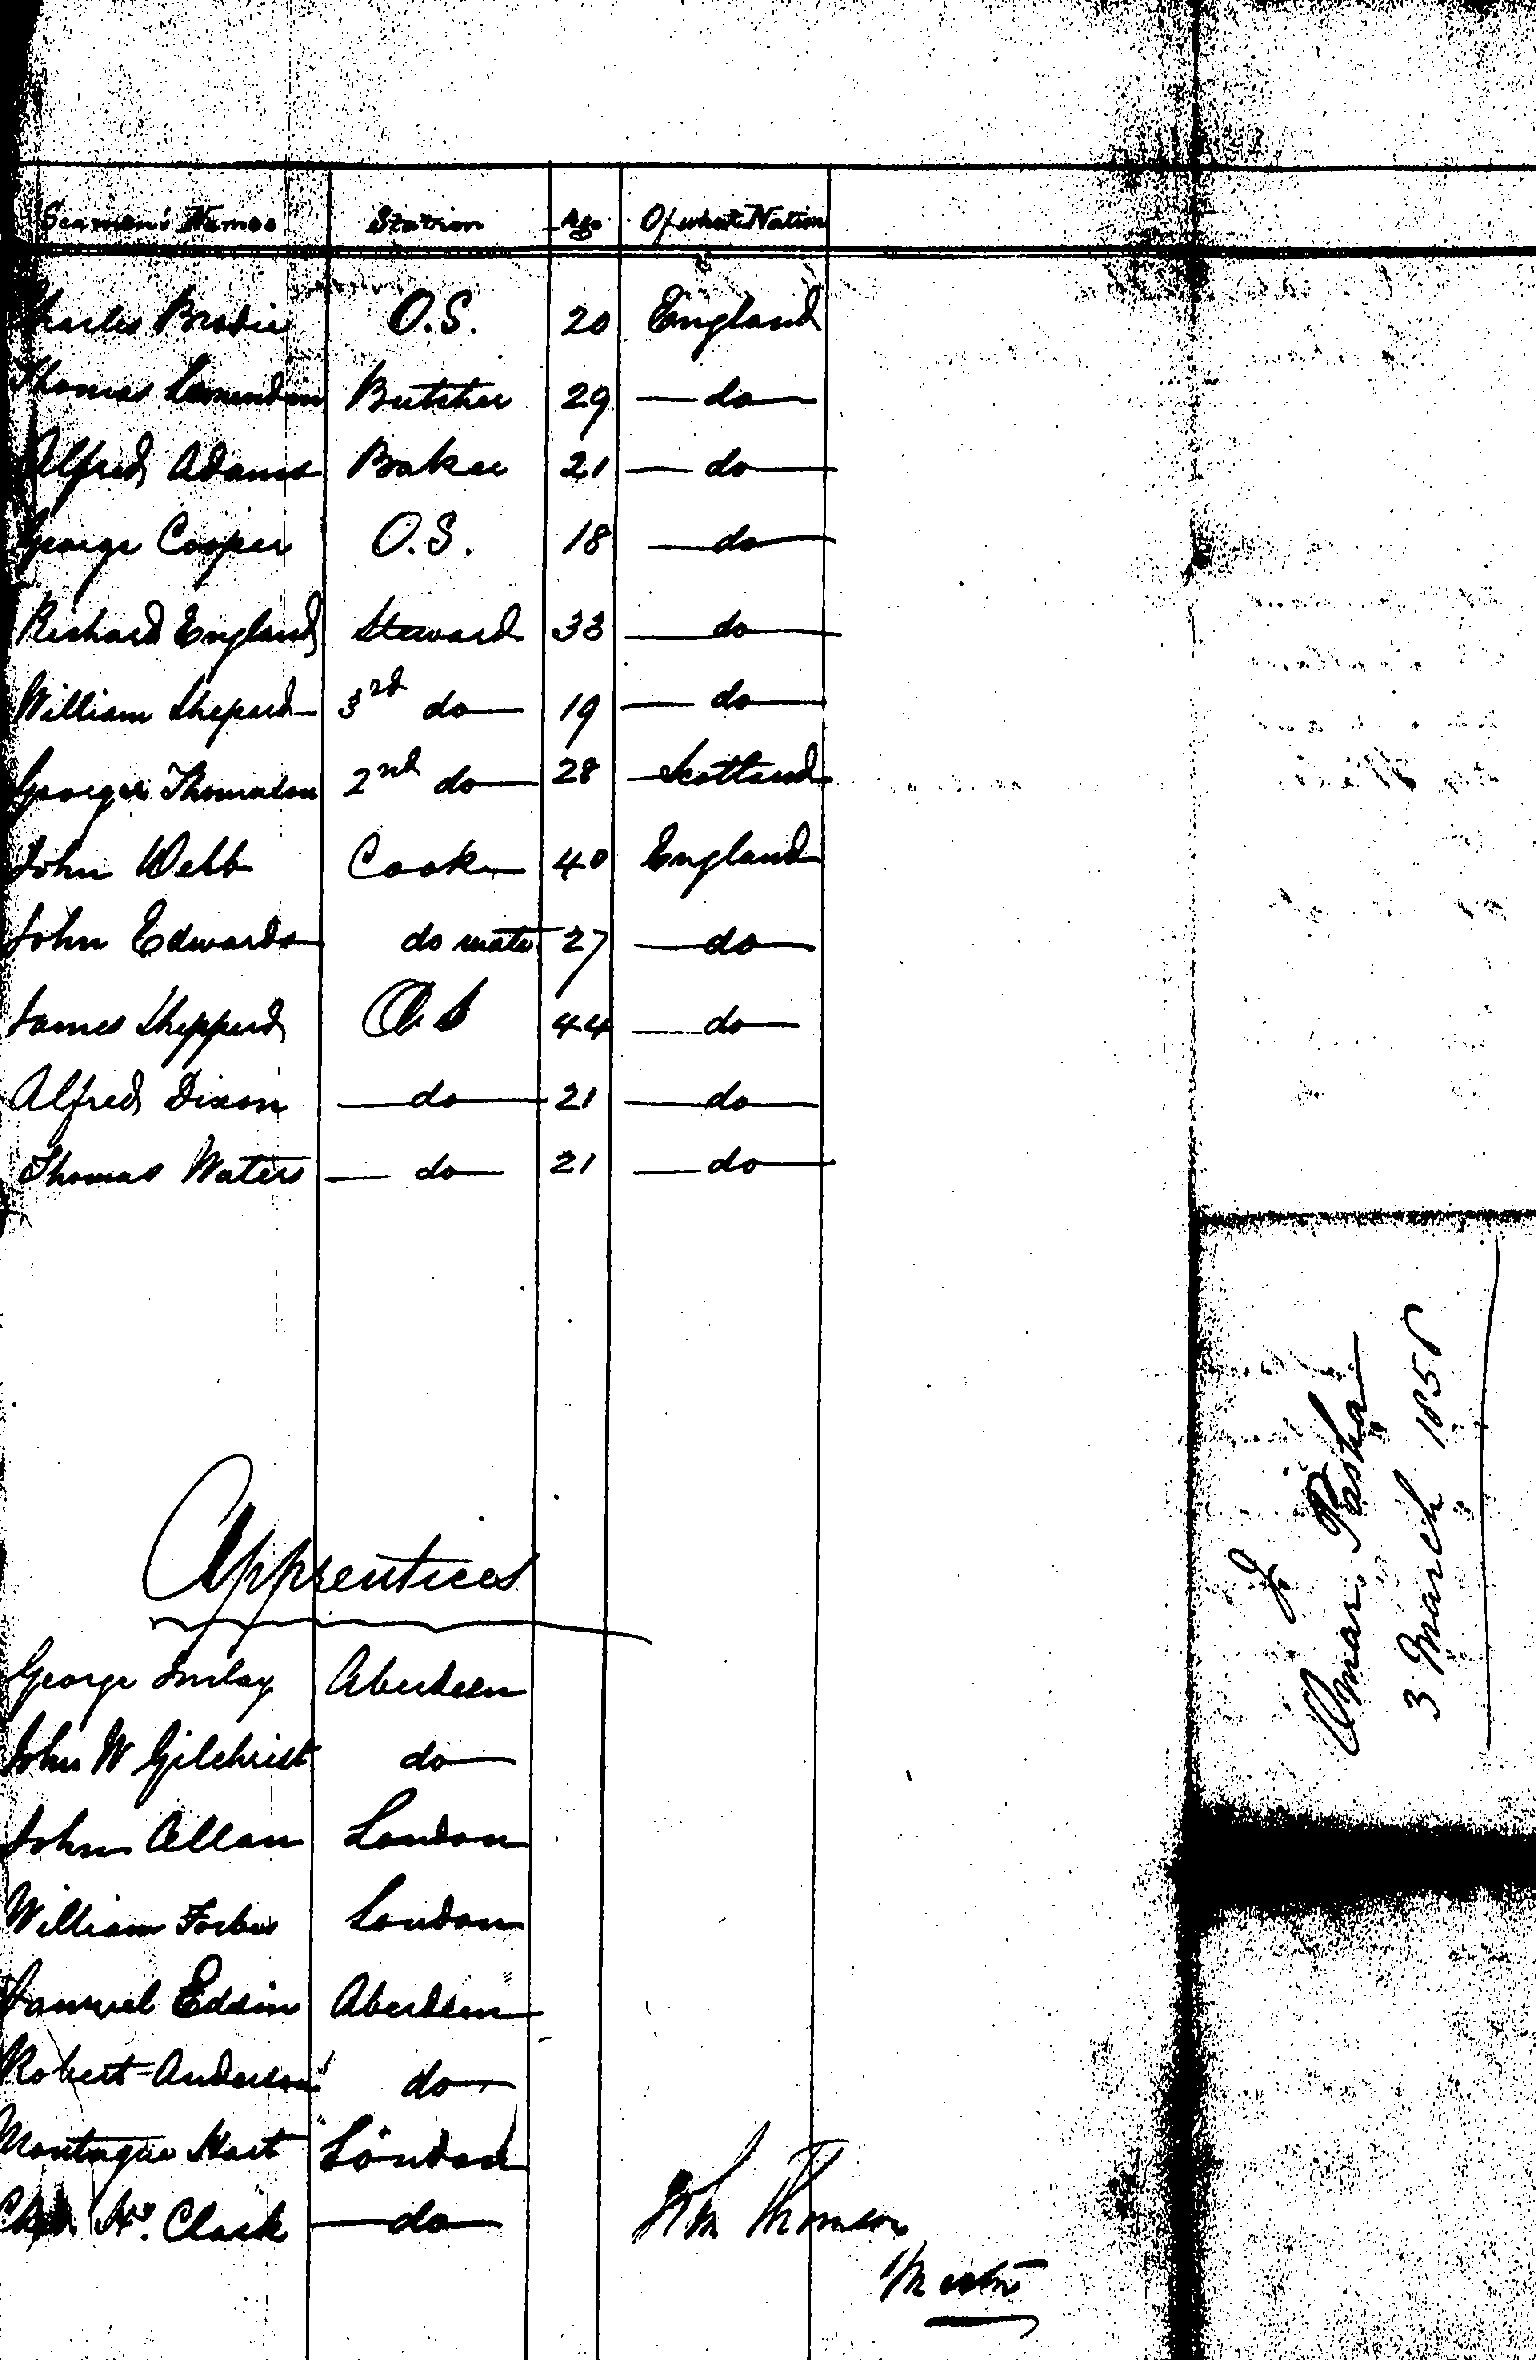 Seamen's Names Station Age Of what Nation
Charles Brodie O.S. 20 England
Thomas Butcher 29 — do —
Alfred Adams Baker 21 — do —
George Cooper O.S. 18 — do —
Richard England Steward 33 — do —
William Sheperd 3rd do — 19 — do —
George Thomason 2nd do — 28 Scotland
John Webb Cook 40 England
John Edwards do mate 27 — do —
James Shepperd AB 44 — do —
Alfred Dixon — do — 21 — do —
Thomas Waters — do — 21 — do —
Apprentices
George Imlay Aberdeen
John W Gilchrist do —
John Allan London
William Forbes London
Samuel Eddin Aberdeen
Robert Anderson do —
Montague Hart London
Clark — do —
Wm Thomson
Master
Omar Pasha
3 March 1858